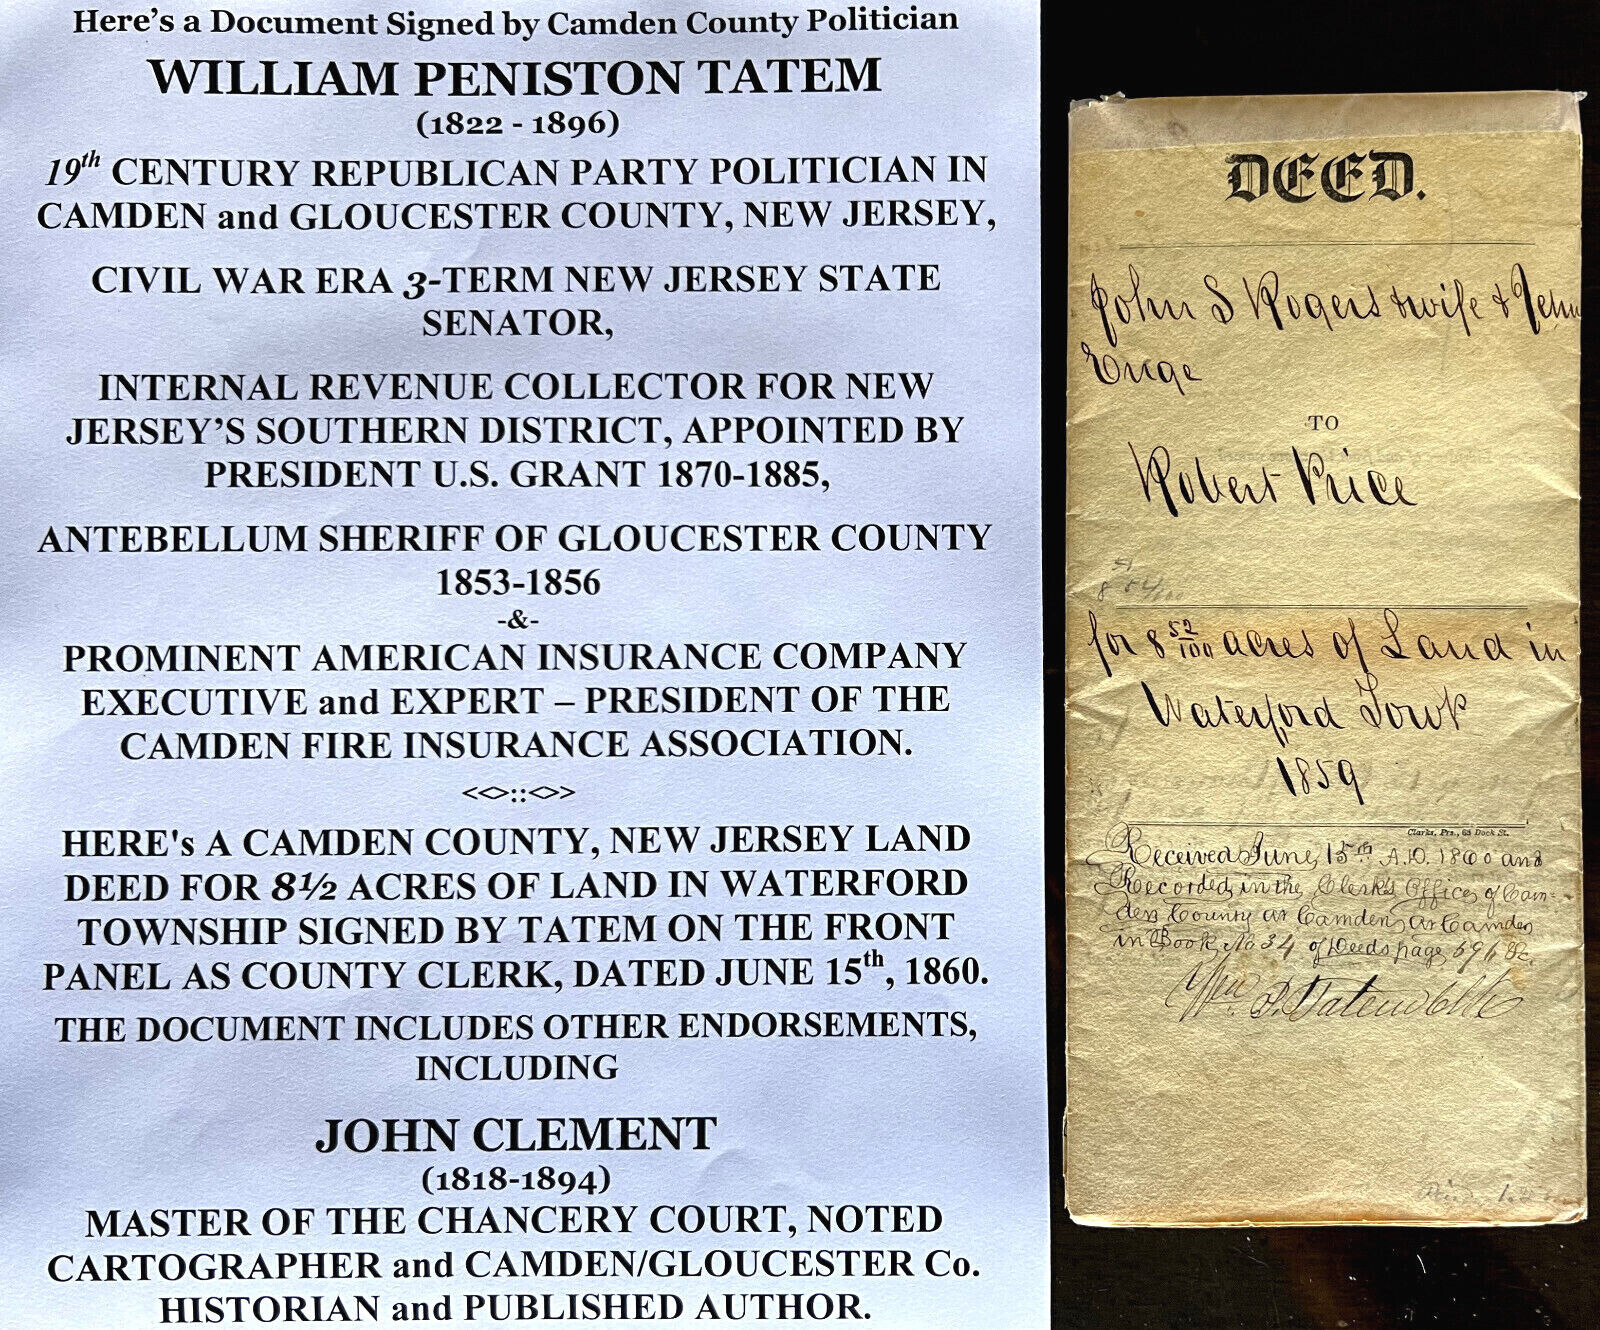 Here's a Document Signed by Camden County Politician
WILLIAM PENISTON TATEM
(1822 - 1896)
19th CENTURY REPUBLICAN PARTY POLITICIAN IN
CAMDEN and GLOUCESTER COUNTY, NEW JERSEY,
CIVIL WAR ERA 3-TERM NEW JERSEY STATE
SENATOR,
INTERNAL REVENUE COLLECTOR FOR NEW
JERSEY'S SOUTHERN DISTRICT, APPOINTED BY
PRESIDENT U.S. GRANT 1870-1885,
ANTEBELLUM SHERIFF OF GLOUCESTER COUNTY
1853-1856
-&-
PROMINENT AMERICAN INSURANCE COMPANY
EXECUTIVE and EXPERT – PRESIDENT OF THE
CAMDEN FIRE INSURANCE ASSOCIATION.
<<>::<>>
HERE's A CAMDEN COUNTY, NEW JERSEY LAND
DEED FOR 8½ ACRES OF LAND IN WATERFORD
TOWNSHIP SIGNED BY TATEM ON THE FRONT
PANEL AS COUNTY CLERK, DATED JUNE 15th, 1860.
THE DOCUMENT INCLUDES OTHER ENDORSEMENTS,
INCLUDING
JOHN CLEMENT
(1818-1894)
MASTER OF THE CHANCERY COURT, NOTED
CARTOGRAPHER and CAMDEN/GLOUCESTER Co.
HISTORIAN and PUBLISHED AUTHOR.
DEED.
John S Rogers & wife &
TO
Robert Price
for 8 52/100 acres of Land in
Waterford Towp
1859
Clarks, Prs., 63 Dock St.
Received June 15th A.D. 1860 and
Recorded in the Clerk's Office of Cam-
den County at Camden at Camden
in Book No 34 of Deeds page 696 &c.
Wm P. Tatem Clk